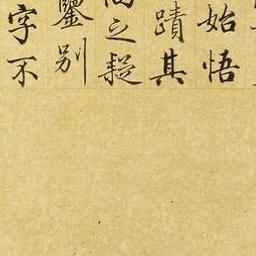 始悟
蹟其
之疑
鑒别
字不